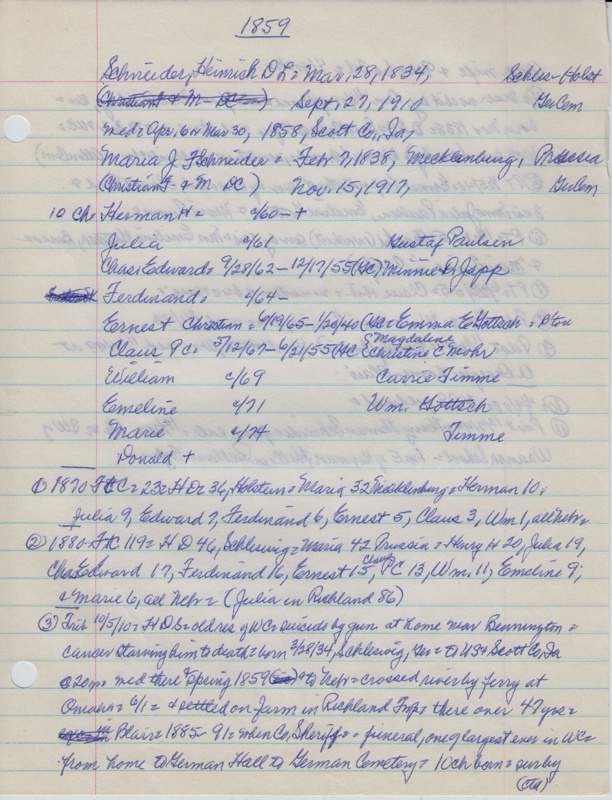 1859
Schneider, Heinrich D L = Mar, 28, 1834, Schles-Holst
(Christian F & M - DC) Sept, 27, 1910 GuCem
med = Apr, 6 or Mar 30, 1858, Scott Co, Ia;
Maria J F Schneider = Feb 7, 1838, Mecklenburg, Prussia
(Christian F - & M DC) Nov. 15, 1917, GuCem
10 ch = Herman H = c/60 - +
Julia c/61 Gustaf Paulsen
Chas, Edward = 9/28/62 - 12/17/55 (BC) Minnie D, Japp
Ferdinand = c/64 -
Ernest Christian = 6/19/65 - 1/20/40 (BC = Emma E Gottsch = Ptou
Claus P C = 5/12/67 - 6/21/55 (BC & Magdalene Christine C Mohr
William c/69 Carrie Timme
Emeline c/71 Wm. Gottsch
Marie c/74 Timme
Donald +
① 1870 Ft C = 23 = H D = 36, Holstein = Maria 32 Mecklenburg = Herman 10,
Julia 9, Edward 7, Ferdinand 6, Ernest 5, Claus 3, Wm 1, all Nebr =
② 1880 - Ft C 119 = H D 46, Schleswig = Maria 42 Prussia = Henry H 20, Julia 19,
Chas Edward 17, Ferdinand 16, Ernest 15, Claus PC 13, Wm, 11, Emeline 9;
& Marie 6, all Nebr = (Julia in Richland 86)
③ Trib 10/5/10 = H D S = oldres of WC = suicids by gun at home near Bennington =
cancer starving him to death = born 3/28/34, Schleswig, Ger = to USA Scott Co, Ia
@ 20 m = med there & spring 1859 to Nebr = crossed river by ferry at
Omaha = 6/1 = & settled on farm in Richland Twp = there over 47 yrs =
Blair = 1885 - 91 = when Co, Sheriff = funeral, one of largest ever in WC =
from home to German Hall to German Cemetery = 10 ch born = surby
(ctd)